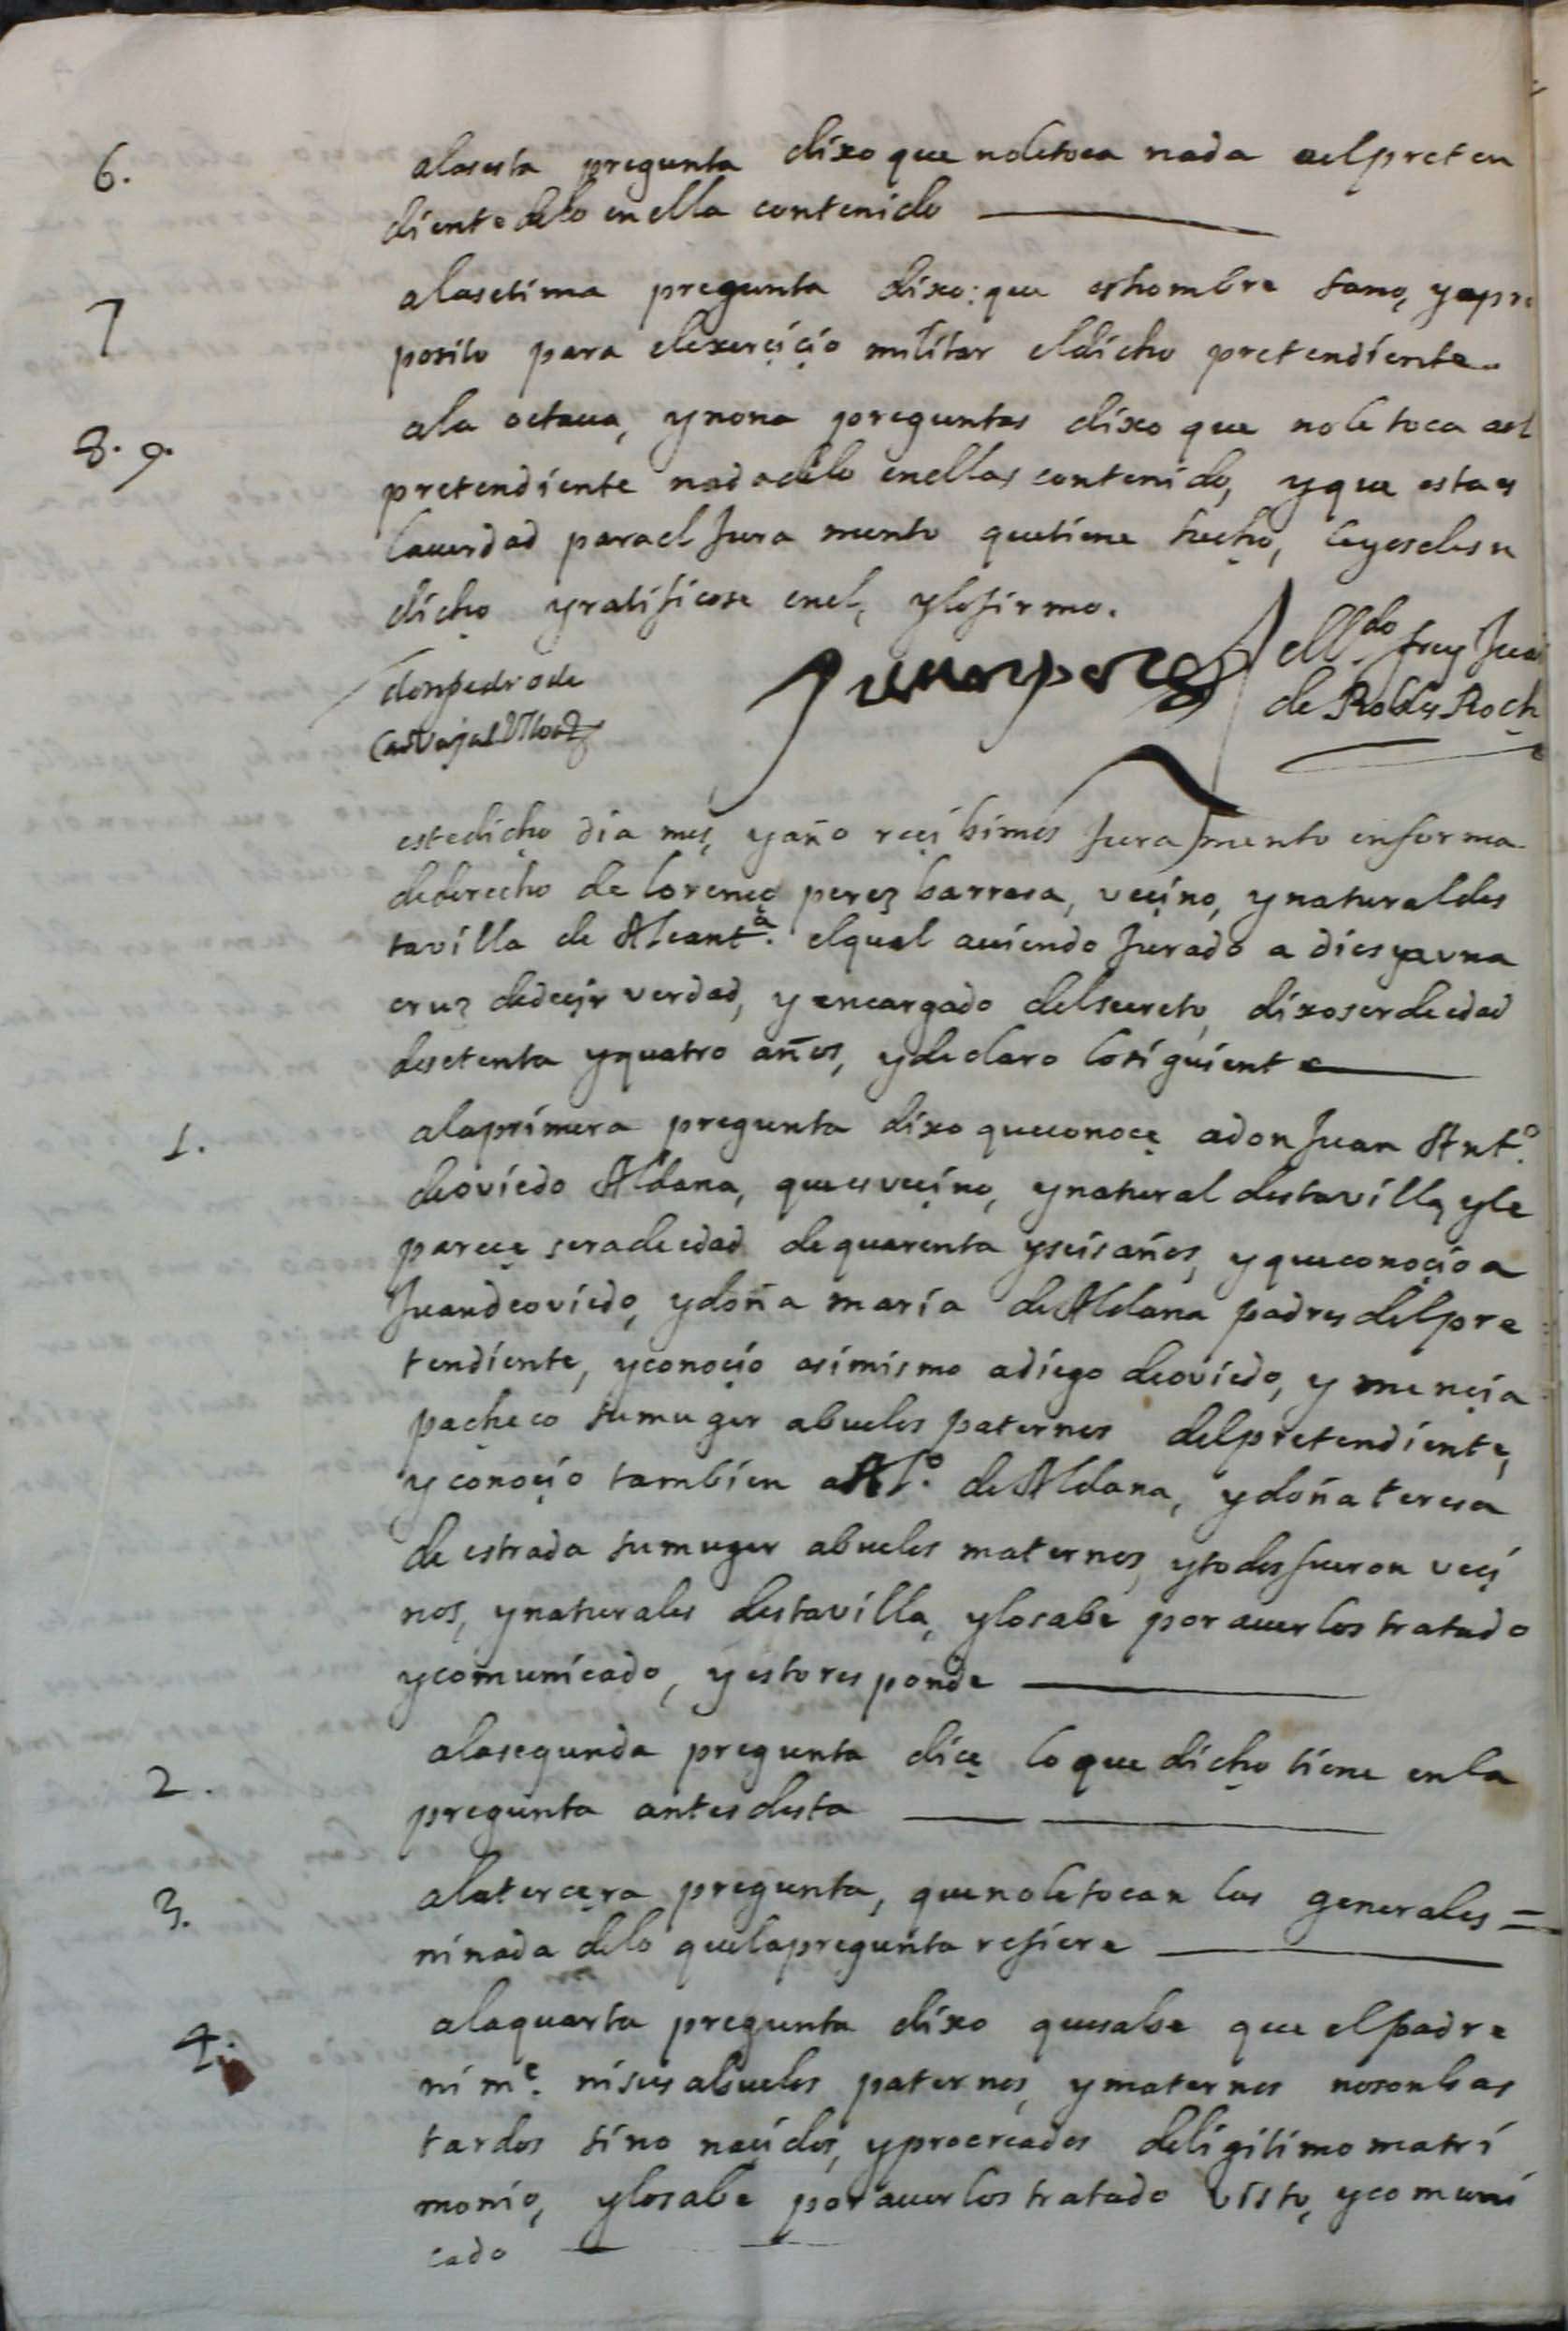 6. alasesta pregunta dixo que noletoca nada aelpreten
diente delo enella contenido
7 alasetima pregunta dixo: que eshombre sano, yapro
posito para elexerçiçio militar eldicho pretendiente.
8. 9. ala octaua, ynona preguntas dixo que nole toca ael
pretendiente nada delo enellas contenido, yque estaes
lauerdad parael Jura mento quetiene hecho, leyoselesu
dicho yratificose enel, ylofirmo.
donpedrode
CarVajal
Juan perez
ellldo. frey Juan
de Robles Roch
estedicho dia mes, yaño reçibimos Juramento enforma
dederecho de lorenço perez barrasa, veçino, ynaturaldes
tavilla de Alcanta. elqual auiendo Jurado a dios yauna
cruz dedeçir verdad, y encargado delsecreto, dixoserdeedad
desetenta yquatro años, ydeclaro losiguiente
1. alaprimera pregunta dixo queconoçe adonJuan Anto.
deoviedo Aldana, queesveçino, ynatural destavilla, yle
pareçe seradeedad dequarenta yseisaños, yqueconoçio a
Juandeoviedo, ydoña maria deAldana padres delpre
tendiente, yconoçio asimismo adiego deoviedo, y mençia
pacheco sumuger abuelos paternos delpretendiente,
yconoçio tambien aAlo. deAldana, ydoñateresa
de estrada sumuger abuelos maternos, ytodosfueron veçi
nos, ynaturales destavilla, ylosabe por auerlos tratado
ycomunicado, yestoresponde
2. alasegunda pregunta diçe loque dicho tiene enla
pregunta antesdesta
3. alaterçera pregunta, quenoletocan las generales =
ninada delo quelapregunta refiere
4. alaquarta pregunta dixo quesabe que elpadre
ni me. nisus abuelos paternos, ymaternos nosonbas
tardos sino naçidos, yprocreados deligitimo matri
monio, ylosabe porauerlos tratado visto, ycomuni
cado